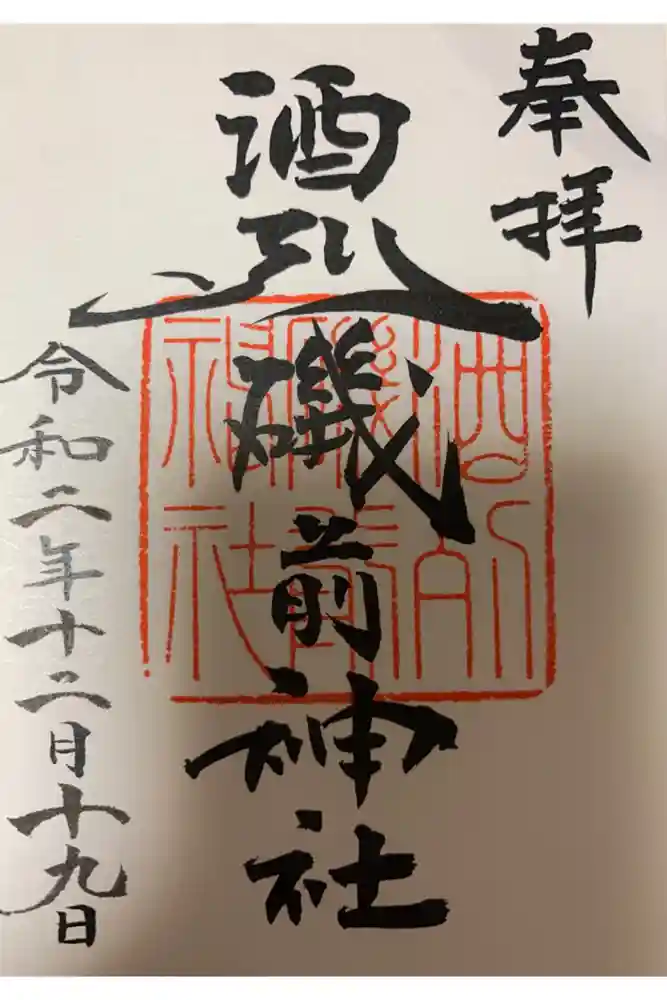 奉拝
酒列磯前神社
令和二年十二月十九日
酒列
磯前
神社